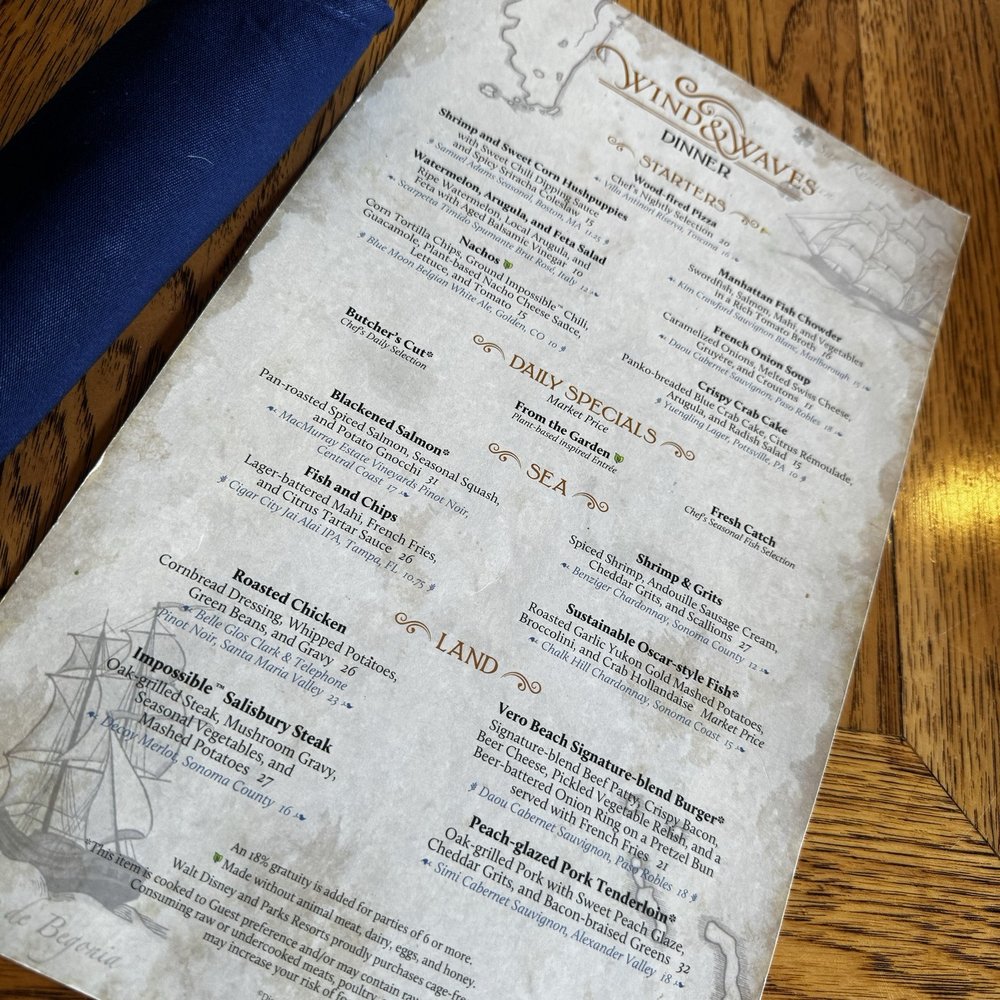 WIND & WAVES
DINNER
STARTERS
Wood-fired Pizza
Chef's Nightly Selection 20
Villa Antinori Riserva, Toscana 16
Shrimp and Sweet Corn Hushpuppies
with Sweet Chili Dipping Sauce
and Spicy Sriracha Coleslaw 15
Samuel Adams Seasonal, Boston, MA 11.25
Watermelon, Arugula, and Feta Salad
Ripe Watermelon, Local Arugula, and
Feta with Aged Balsamic Vinegar 10
Scarpetta Timido Spumante Brut Rosé, Italy 12
Nachos
Corn Tortilla Chips, Ground Impossible™ Chili,
Guacamole, Plant-based Nacho Cheese Sauce,
Lettuce, and Tomato 15
Blue Moon Belgian White Ale, Golden, CO 10
Manhattan Fish Chowder
Swordfish, Salmon, Mahi, and Vegetables
in a Rich Tomato Broth 16
Kim Crawford Sauvignon Blanc, Marlborough 15
French Onion Soup
Caramelized Onions, Melted Swiss Cheese,
Gruyère, and Croutons 11
Daou Cabernet Sauvignon, Paso Robles 18
Crispy Crab Cake
Panko-breaded Blue Crab Cake, Citrus Rémoulade,
Arugula, and Radish Salad 15
Yuengling Lager, Pottsville, PA 10
DAILY SPECIALS
Market Price
Butcher's Cut*
Chef's Daily Selection
From the Garden
Plant-based inspired Entrée
Fresh Catch
Chef's Seasonal Fish Selection
SEA
Blackened Salmon*
Pan-roasted Spiced Salmon, Seasonal Squash,
and Potato Gnocchi 31
MacMurray Estate Vineyards Pinot Noir,
Central Coast 17
Fish and Chips
Lager-battered Mahi, French Fries,
and Citrus Tartar Sauce 26
Cigar City Jai Alai IPA, Tampa, FL 10.75
Shrimp & Grits
Spiced Shrimp, Andouille Sausage Cream,
Cheddar Grits, and Scallions 27
Benziger Chardonnay, Sonoma County 12
Sustainable Oscar-style Fish*
Roasted Garlic Yukon Gold Mashed Potatoes,
Broccolini, and Crab Hollandaise Market Price
Chalk Hill Chardonnay, Sonoma Coast 15
LAND
Roasted Chicken
Cornbread Dressing, Whipped Potatoes,
Green Beans, and Gravy 26
Belle Glos Clark & Telephone
Pinot Noir, Santa Maria Valley 23
Impossible™ Salisbury Steak
Oak-grilled Steak, Mushroom Gravy,
Seasonal Vegetables, and
Mashed Potatoes 27
Decoy Merlot, Sonoma County 16
Vero Beach Signature-blend Burger*
Signature-blend Beef Patty, Crispy Bacon,
Beer Cheese, Pickled Vegetable Relish, and a
Beer-battered Onion Ring on a Pretzel Bun
served with French Fries 21
Daou Cabernet Sauvignon, Paso Robles 18
Peach-glazed Pork Tenderloin*
Oak-grilled Pork with Sweet Peach Glaze,
Cheddar Grits, and Bacon-braised Greens 32
Simi Cabernet Sauvignon, Alexander Valley 18
An 18% gratuity is added for parties of 6 or more.
Made without animal meat, dairy, eggs, and honey.
Walt Disney and Parks Resorts proudly purchases cage-fre
*This item is cooked to Guest preference and/or may contain raw
Consuming raw or undercooked meats, poultry
may increase your risk of f
de Begonia